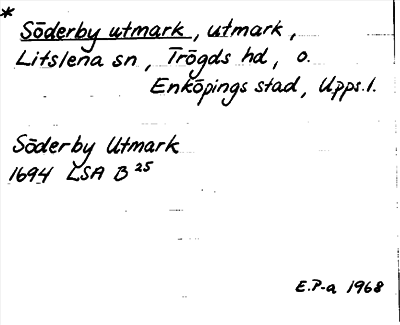 * Söderby utmark, utmark,
Litslena sn, Trögds hd, o.
Enköpings stad, Upps. l.
Söderby Utmark
1694 LSA B 25
E.P-a 1968